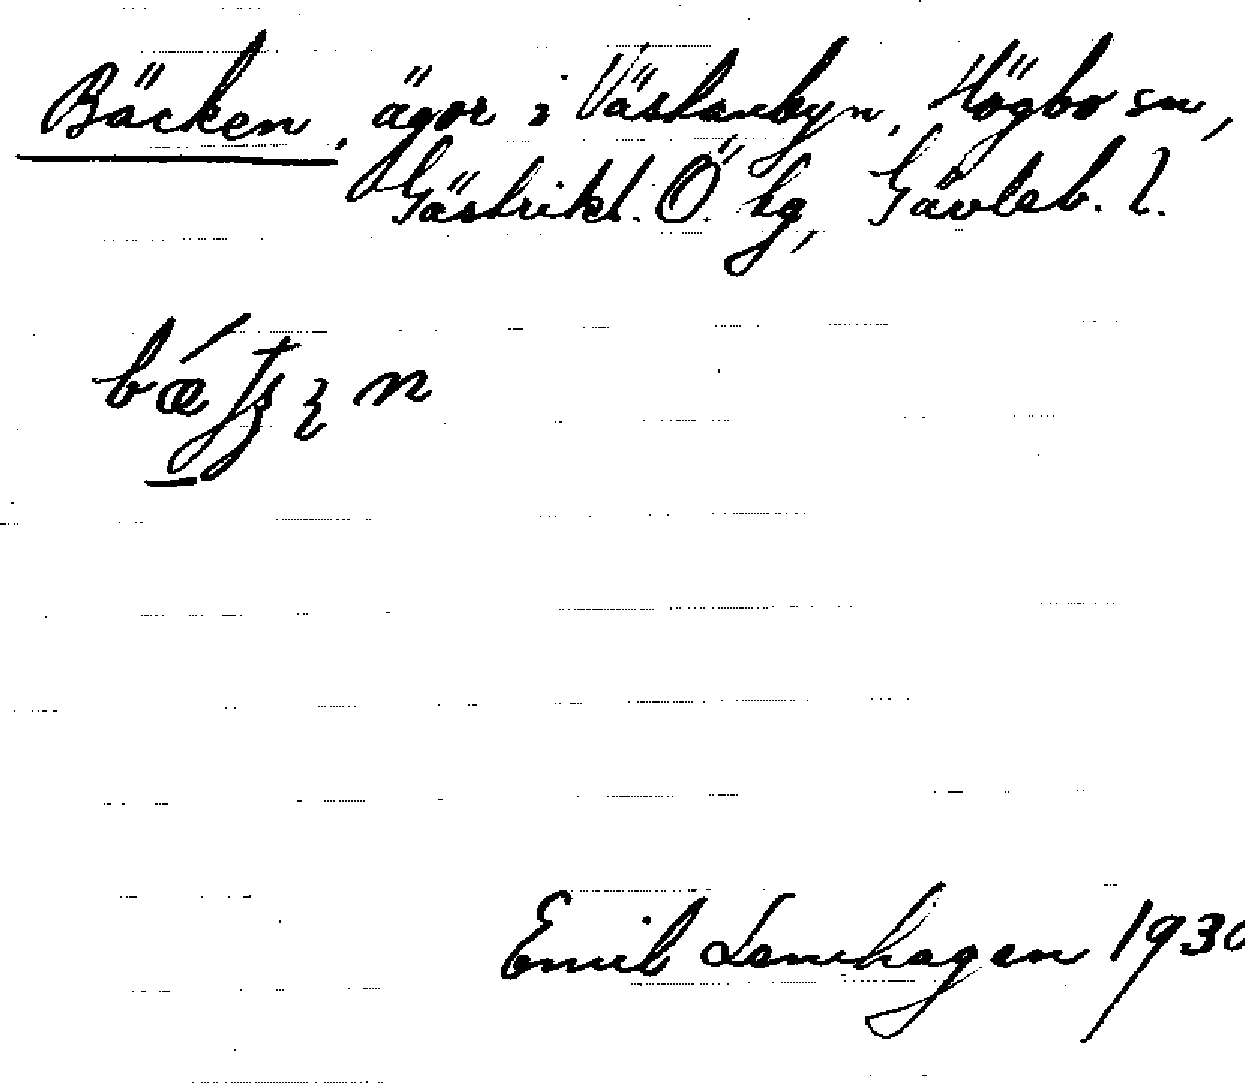 Bäcken, ägor i Västanbyn, Högbo sn,
Gästrikl. Ö. hg, Gävleb. l.
Emil Lenhagen 1930